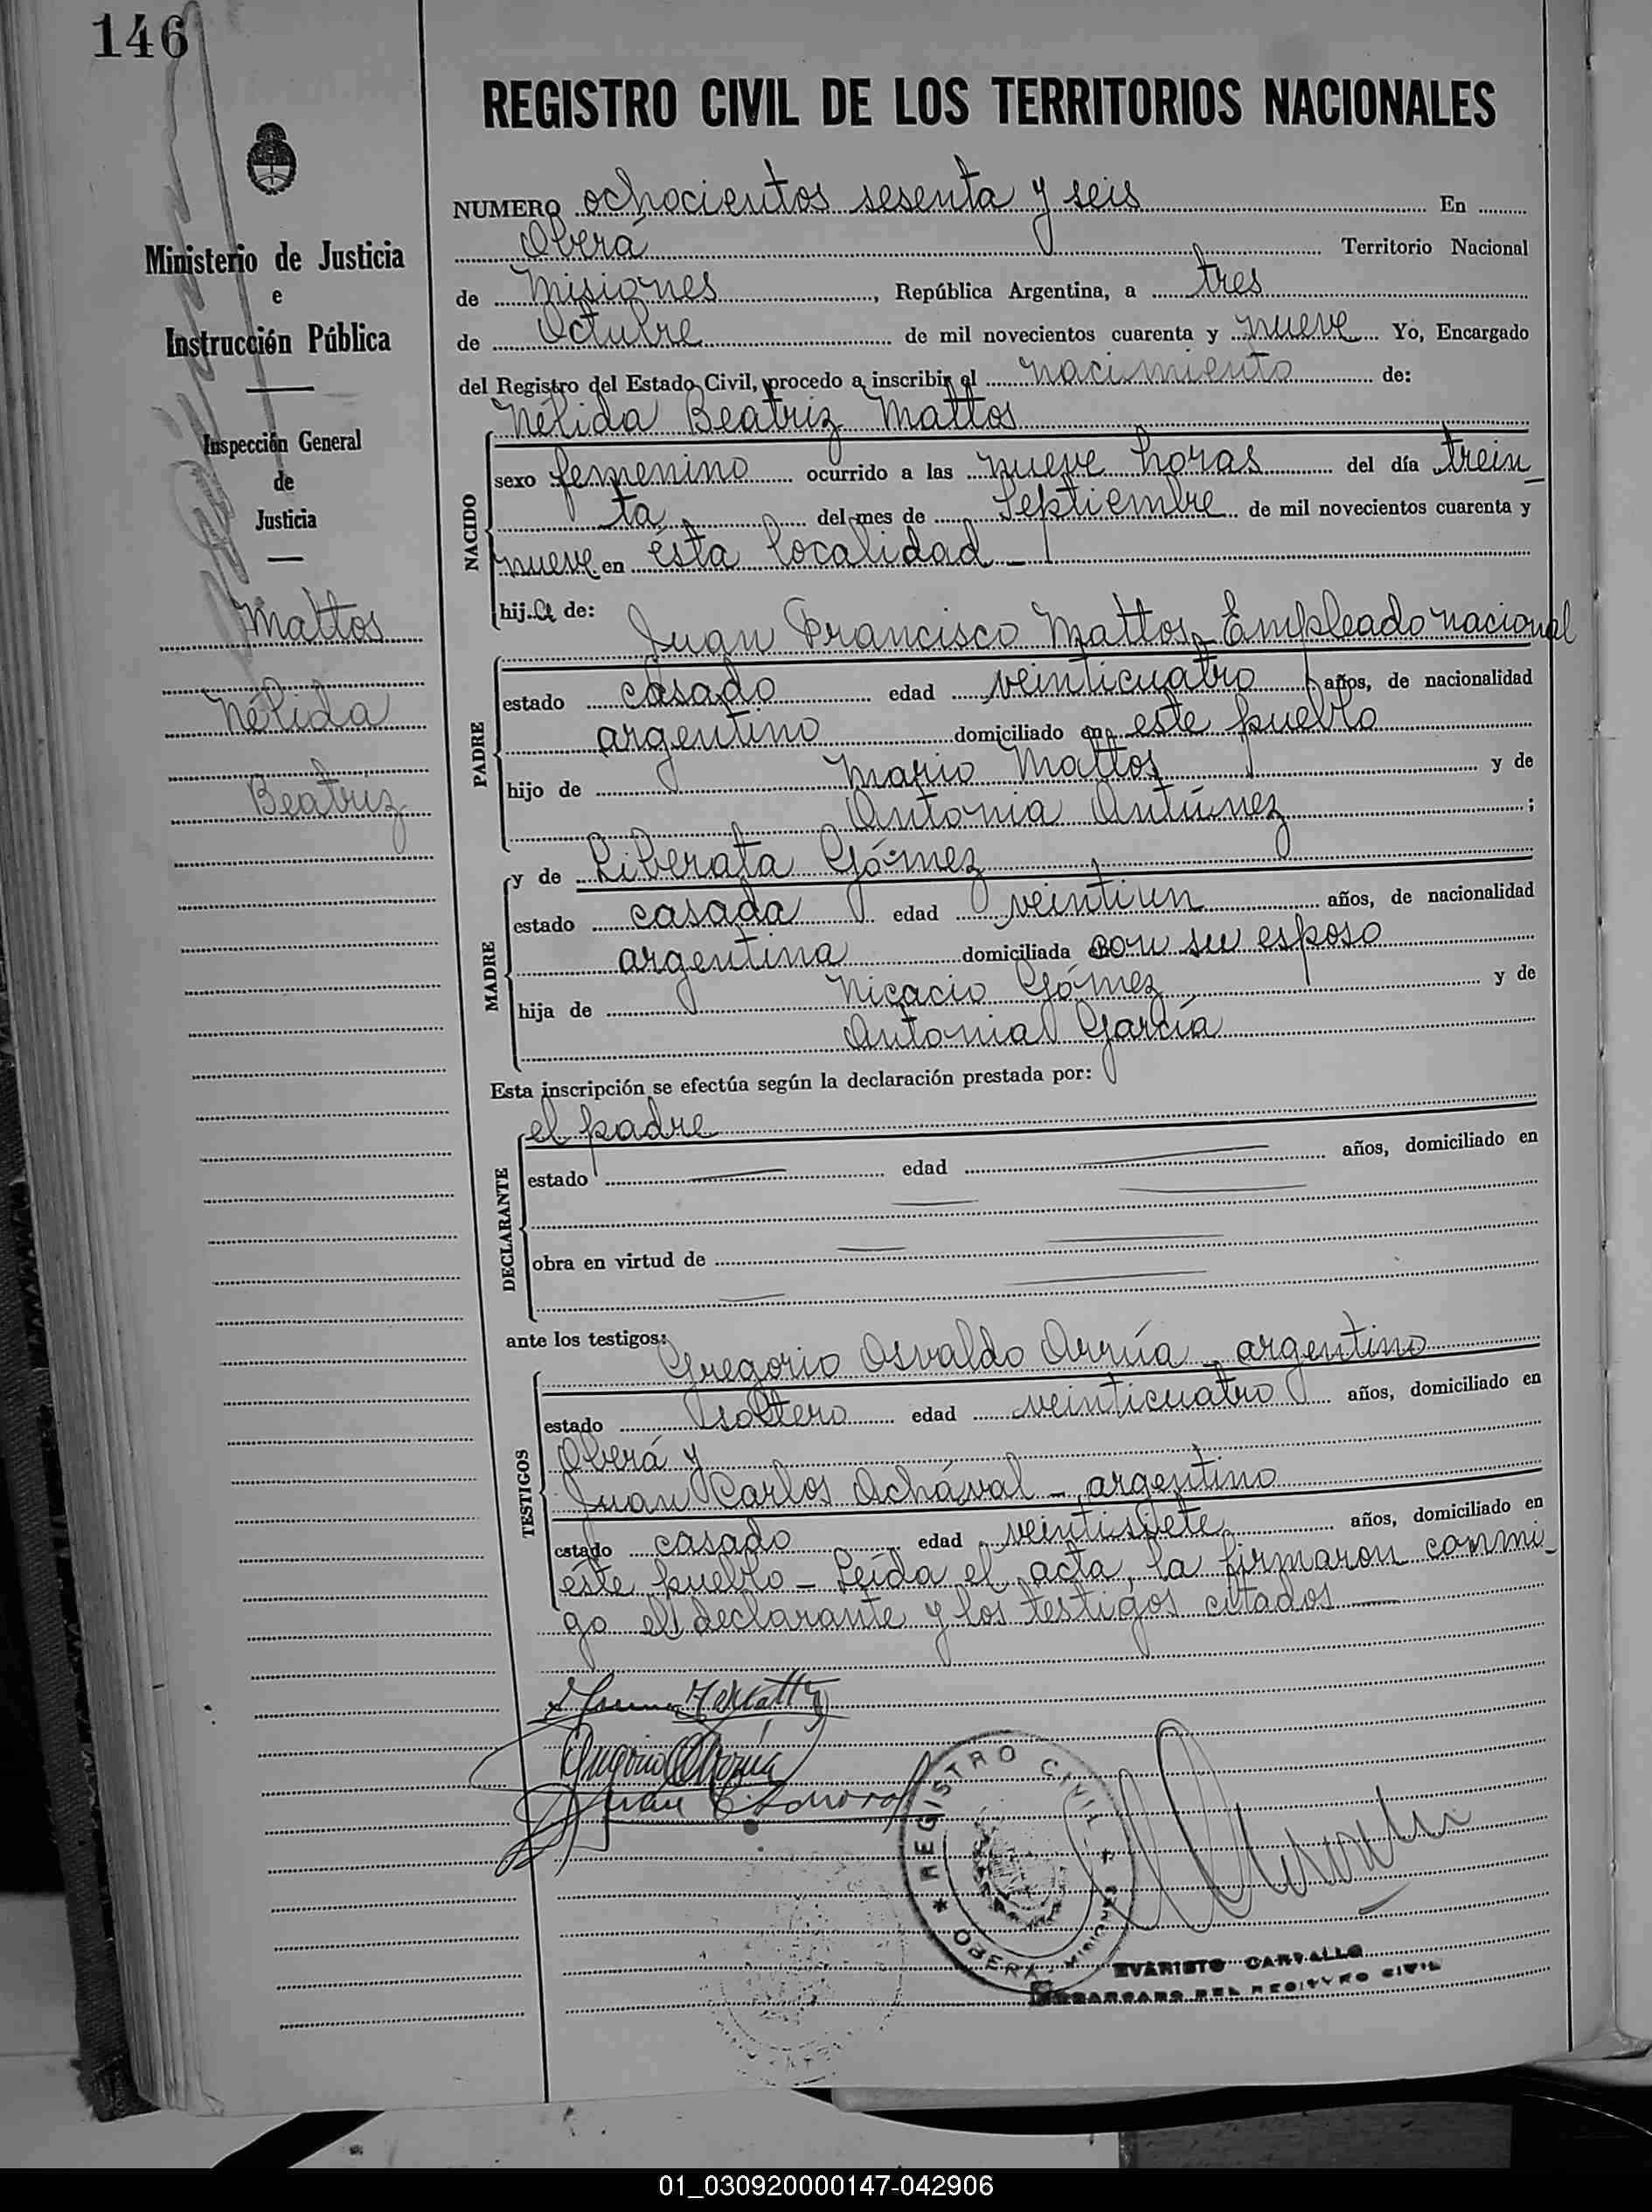 146
REGISTRO CIVIL DE LOS TERRITORIOS NACIONALES
Ministerio de Justicia
e
Instrucción Pública
Inspección General
de
Justicia
Mattos
Nélida
Beatriz
NUMERO ochocientos sesenta y seis En
Oberá Territorio Nacional
de Misiones, República Argentina, a tres
de Octubre de mil novecientos cuarenta y nueve Yo, Encargado
del Registro del Estado Civil, procedo a inscribir el nacimiento de:
Nélida Beatriz Mattos
NACIDO
sexo femenino ocurrido a las nueve horas del día trein
ta del mes de Septiembre de mil novecientos cuarenta y
nueve en ésta localidad -
hija de:
Juan Francisco Mattos - Empleado nacional
PADRE
estado casado edad veinticuatro años, de nacionalidad
argentino domiciliado en este pueblo
hijo de Mario Mattos y de
Antonia Antúnez ;
y de Liberata Gómez
MADRE
estado casada edad veintiun años, de nacionalidad
argentina domiciliada con su esposo
hija de Nicacio Gómez y de
Antonia García
Esta inscripción se efectúa según la declaración prestada por:
el padre
DECLARANTE
estado edad años, domiciliado en
obra en virtud de
ante los testigos:
Gregorio Osvaldo Arrúa - argentino
TESTIGOS
estado soltero edad veinticuatro años, domiciliado en
Oberá y
Juan Carlos Achával - argentino
estado casado edad veintisiete años, domiciliado en
éste pueblo - Leída el acta, la firmaron conmi-
go el declarante y los testigos citados
REGISTRO CIVIL
OBERA MISIONES
EVARISTO CARVALLO
ENCARGADO DEL REGISTRO CIVIL
01_030920000147-042906